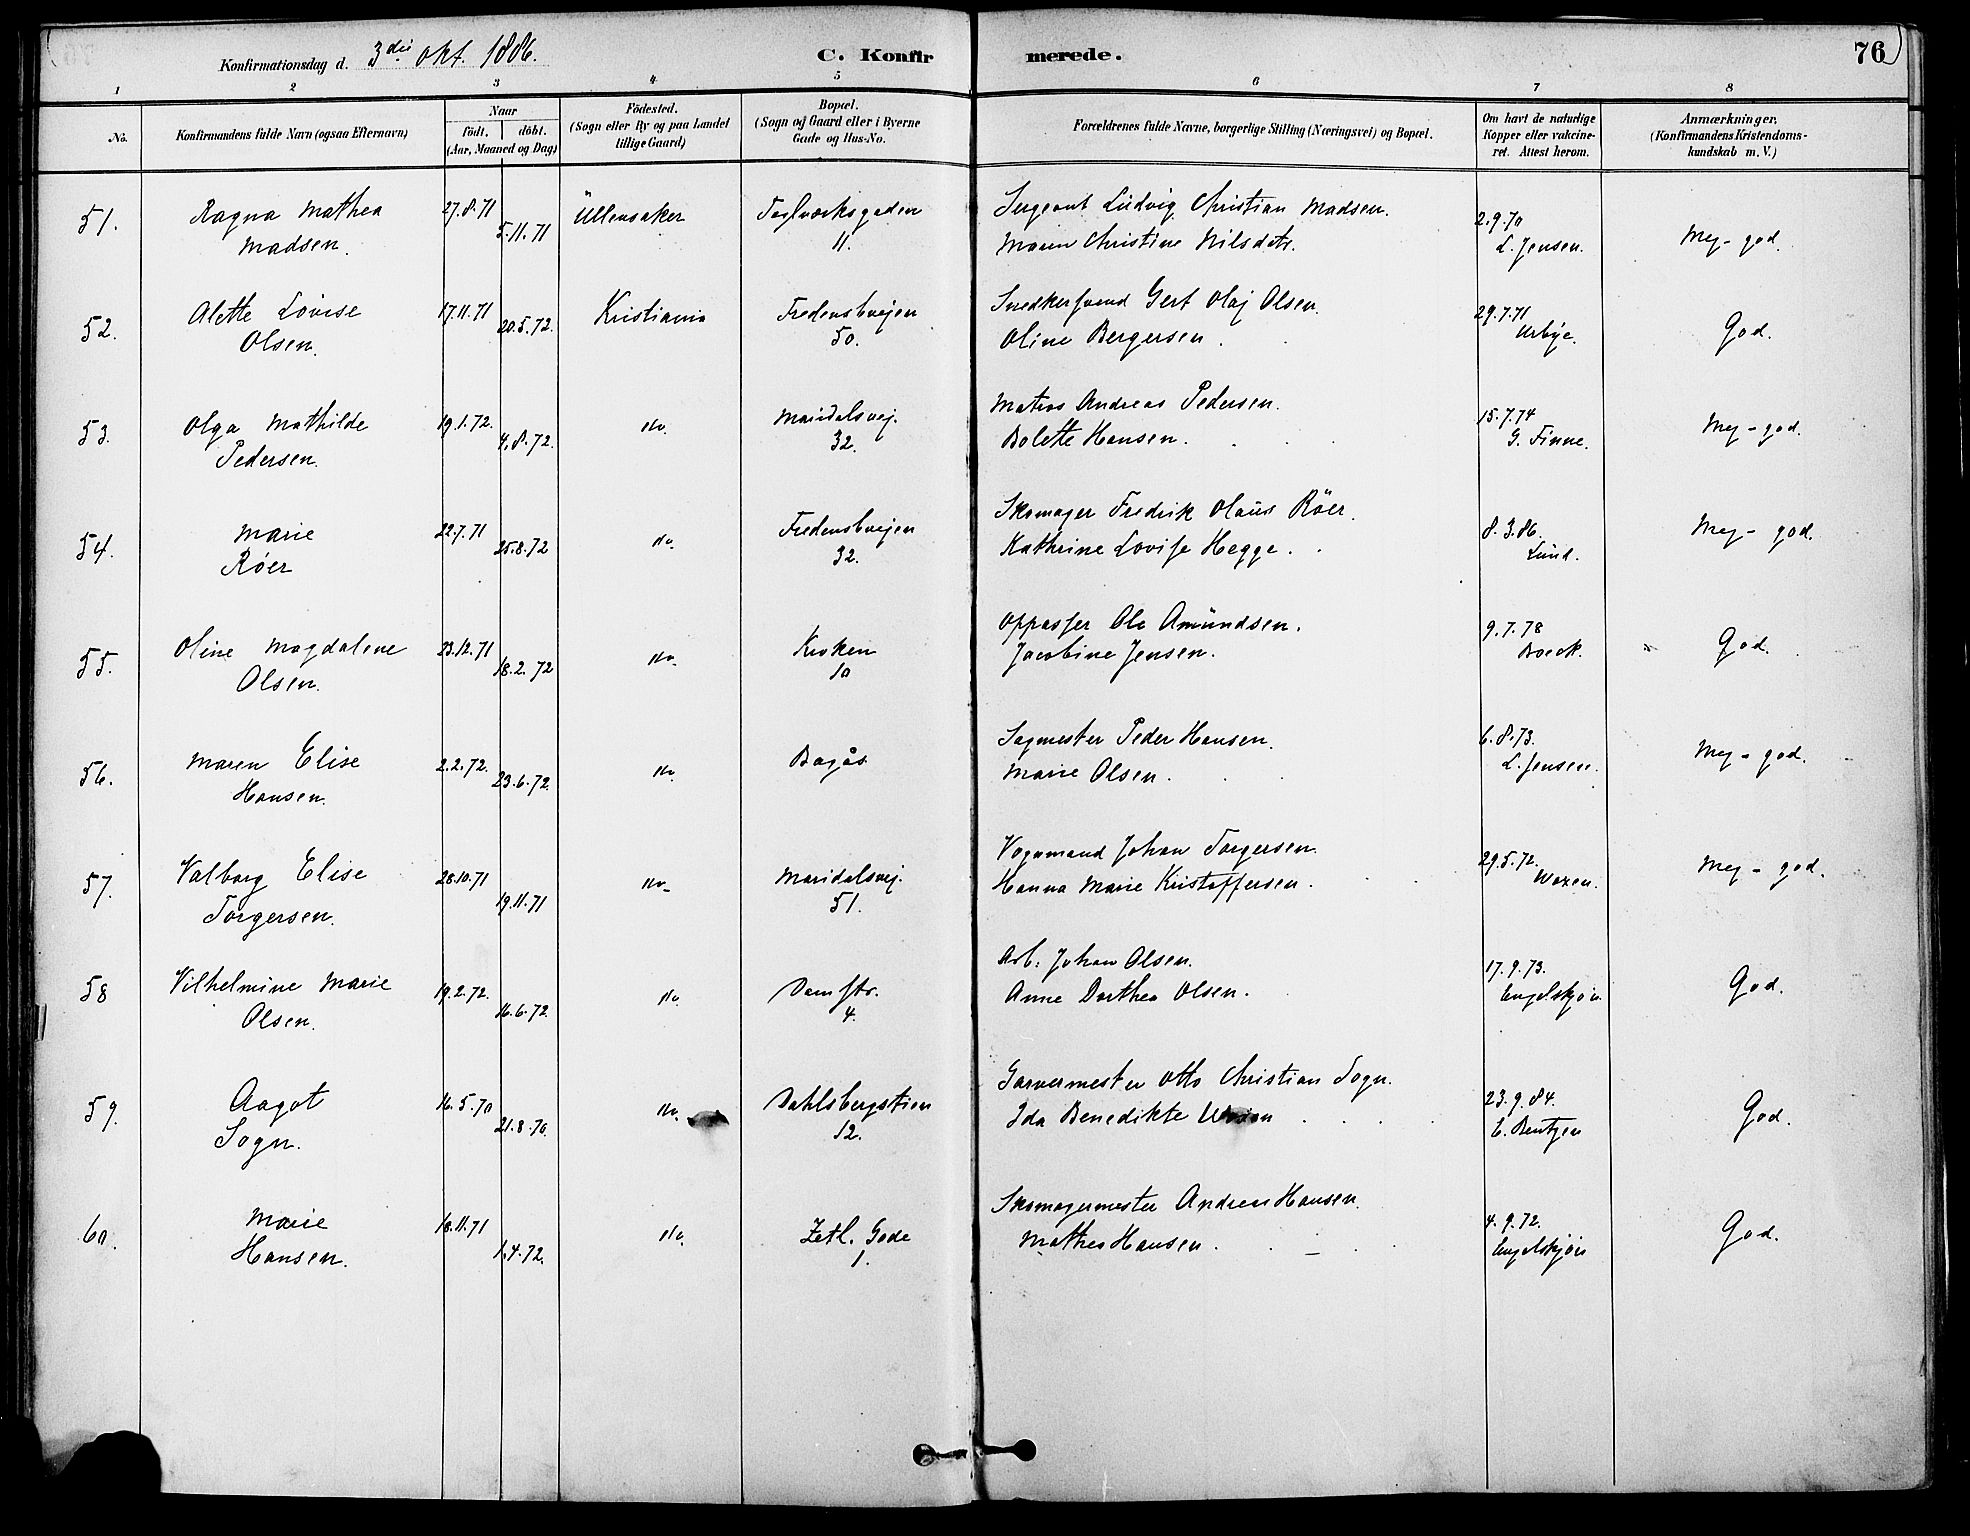 Konfirmationsdag d. 3die okt. 1886. C. Konfirmerede. 76
1 2 3 4 5 6 7 8
No. Konfirmandens fulde Navn (ogsaa Efternavn) Naar födt. döbt. (Aar, Maaned og Dag) Födested. (Sogn eller By og paa Landet tillige Gaard) Bopæl. (Sogn og Gaard eller i Byerne Gade og Hus-No. Forældrenes fulde Navne, borgerlige Stilling (Næringsvei) og Bopæl. Om havt de naturlige Kopper eller vakcineret. Attest herom. Anmærkninger. (Konfirmandens Kristendomskundskab m. V.)
51. Ragna Mathea 27.8.71 5.11.71 Üllensaker Teglverksgaden Sergeant Lüdvig Christian Madsen. 2.9.70 Meg-god.
Madsen. 11. Maren Christine Nilsdtr. L. Jensen.
52. Alette Lovise 17.11.71 20.5.72. Kristiania Fredensbvejen Snedkersvend Gert Olaj Olsen. 29.7.71 God.
Olsen. 50. Oline Bergersen. Urbye.
53. Olga Mathilde 19.1.72. 4.8.72. do. Maridalsvej. Matros Andreas Pedersen. 15.7.74 Meg-god.
Pedersen. 32. Bolette Hansen. G. Finne.
54. Marie 22.7.71 25.8.72 do. Fredensbvejen Skomager Fredrik Olaüs Röer. 8.3.86. Meg-god.
Röer 32. Kathrine Lovise Hegge. Lünd.
55. Oline Magdalene 23.12.71 18.2.72 do. Kroken Oppasser Ole Amündsen. 9.7.78 God.
Olsen. 10 Jacobine Jensen. Boeck.
56. Maren Elise 2.2.72. 23.6.72. do. Bagås Sagmester Peder Hansen. 6.8.73. Meg-god.
Hansen. Marie Olsen. L. Jensen.
57. Valborg Elise 28.10.71 19.11.71 do. Maridalsvej. Vognmand Johan Torgersen. 29.5.72. Meg-god.
Torgersen. 51. Hanna Marie Kristoffersen. Woxen.
58 Vilhelmine Marie 19.2.72. 16.6.72. do. Damstr. Arb. Johan Olsen. 17.9.73. God.
Olsen. 4. Anne Dorthea Olsen. Engelskjön
59. Aagot 16.5.70 21.8.70. do. Dahlsbergstien Garvermester Otto Christian Sogn. 23.9.84. God.
Sogn. 12. Ida Benedikte E. Bentzen
60. Marie 18.11.71 1.4.72. do. Zetl. Gade Skomagermester Andreas Hansen. 4.9.72. God.
Hansen. 1. Mathea Hansen. Engelskjön